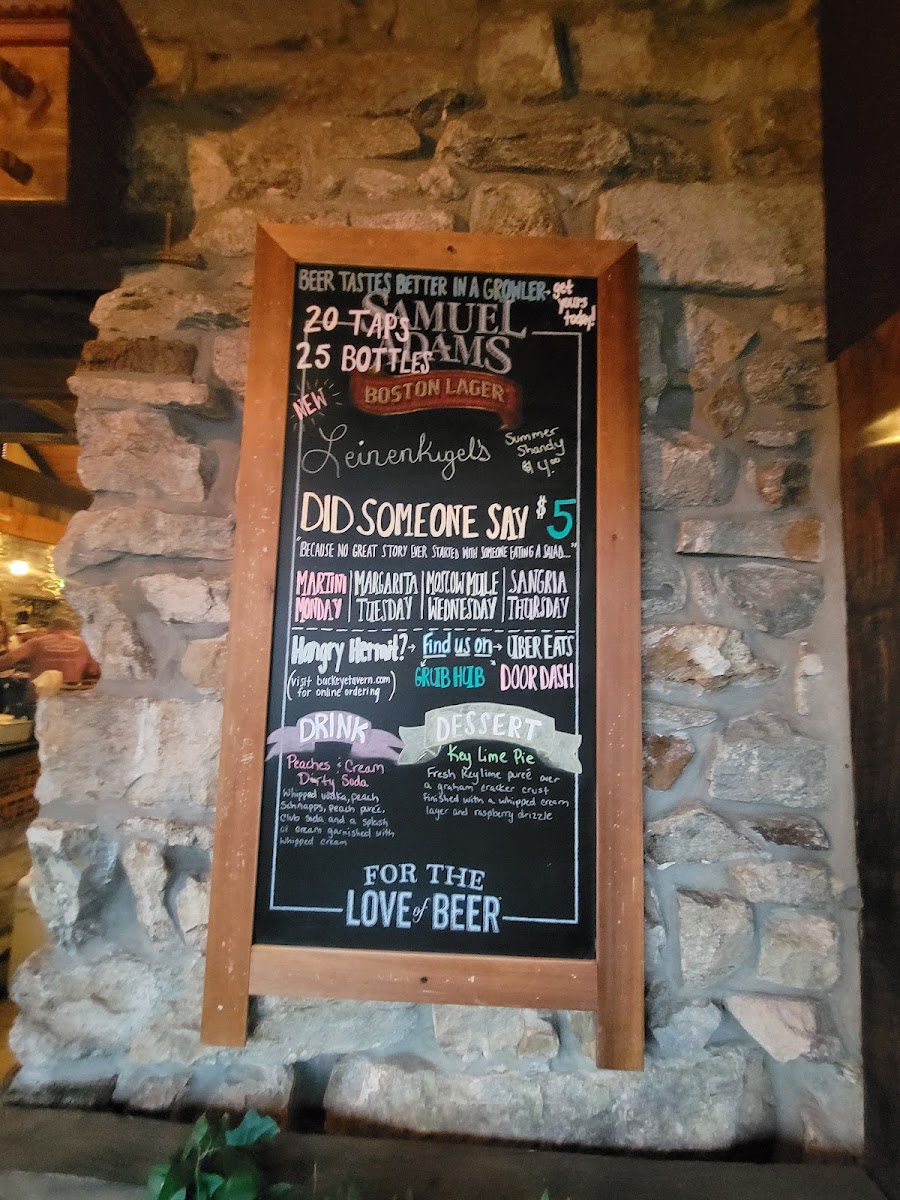 BEER TASTES BETTER IN A GROWLER - get yours today!
SAMUEL
ADAMS
BOSTON LAGER
20 TAPS
25 BOTTLES
NEW
Leinenkugel's
Summer
Shandy
$4.00
DID SOMEONE SAY $5
"BECAUSE NO GREAT STORY EVER STARTED WITH SOMEONE EATING A SALAD..."
MARTINI | MARGARITA | MOSCOW MULE | SANGRIA
MONDAY | TUESDAY | WEDNESDAY | THURSDAY
Hangry Hermit? → Find us on → UBER EATS
(visit buckeyetavern.com
for online ordering)
GRUB HUB DOOR DASH
DRINK
Peaches & Cream
Dirty Soda
Whipped vodka, peach
Schnapps, peach puree,
Club Soda and a splash
of cream garnished with
whipped cream
DESSERT
Key Lime Pie
Fresh Key lime pureé over
a graham cracker crust
Finished with a whipped cream
layer and raspberry drizzle
FOR THE
LOVE of BEER